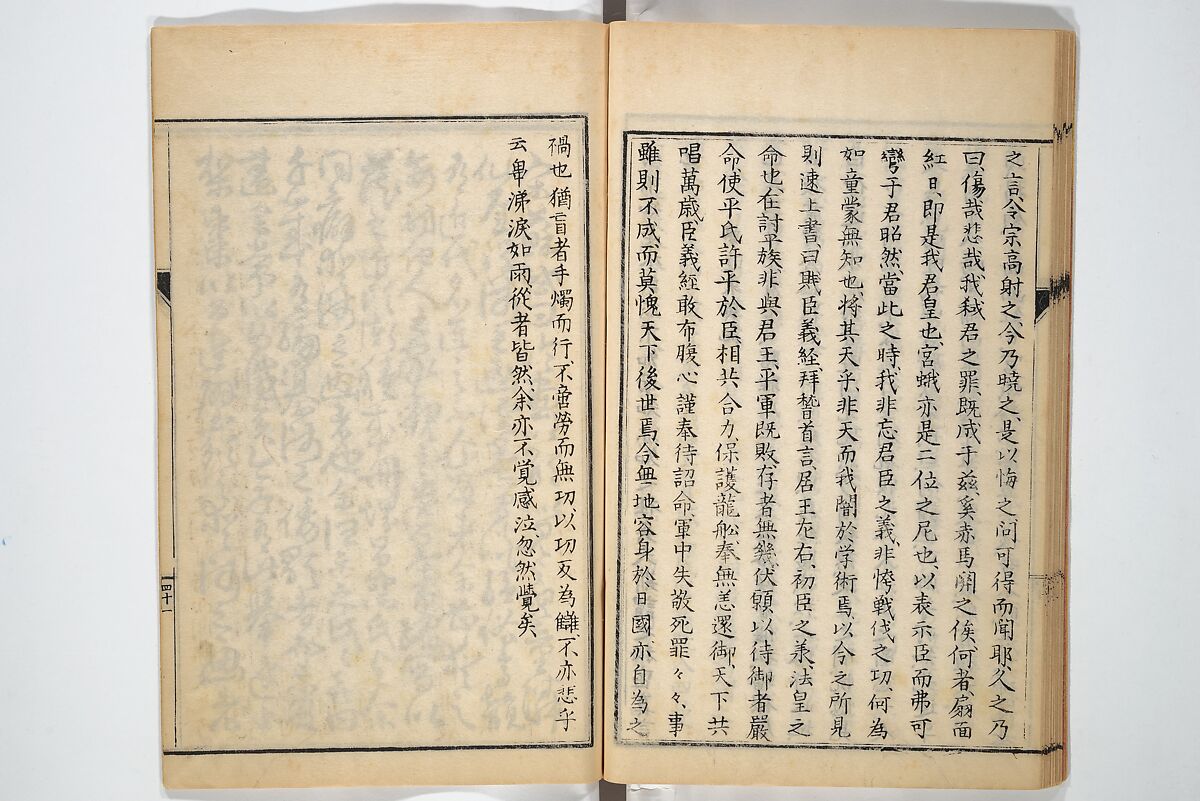 之言、令宗高射之、今乃曉之、是以悔之、问可得而聞耶、久之乃
曰、傷哉悲哉、我弑君之罪、既成于茲、奚赤馬関之俟、何者、扇面
紅日、即是我君皇也、宮蛾亦是二位之尼也、以表示臣而弗可
彎于君昭然、當此之時、我非忘君臣之義、非悋戦伐之功、何為
如童蒙無知也、将其天乎、非天而我闇於学術焉、以今之所見
則速上書、曰賎臣義経、拜嵆首言、居王左右、初臣之義、法皇之
命也、在討平族、非與君王、平軍既敗、存者無幾、伏願以待御者嚴
命、使平氏許平於臣、相共合力、保護龍舩、奉無恙還御、天下共
唱萬歳、臣義経敢布腹心、謹奉待詔命、軍中失敬死罪々々、事
雖則不成、而莫愧天下後世焉、今無地容身於日國、亦自為之
禍也、猶盲者手燭而行、不啻勞而無功、以功反為讎、不亦悲乎
云畢、涕涙如雨、從者皆然、余亦不覚感泣、忽然覺矣
四十一